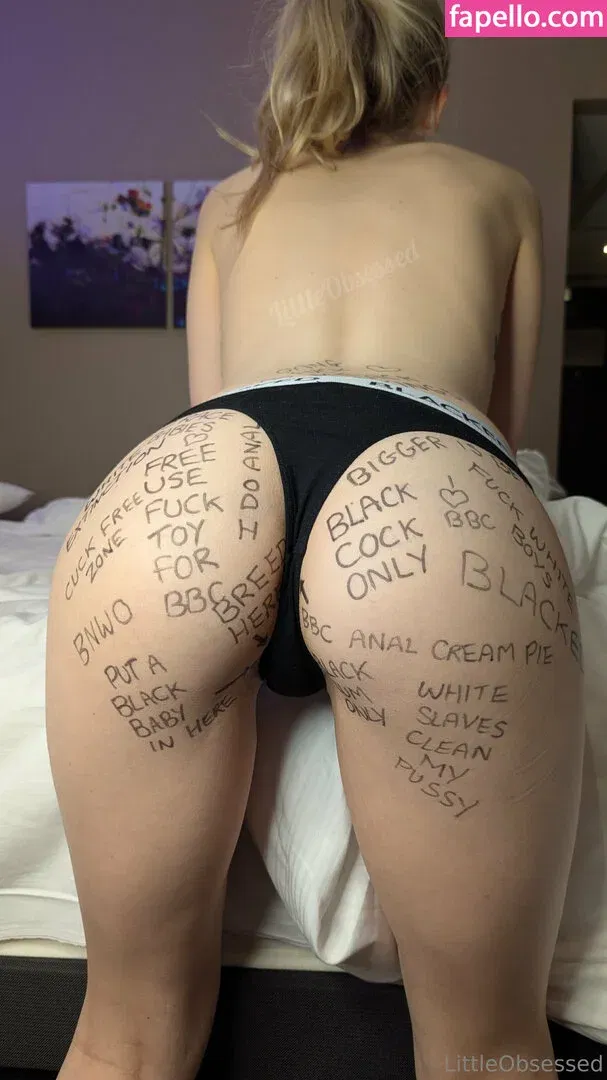 fapello.com
LittleObsessed
BLACKED
EXTINCTION
CUCK FREE
ZONE
FREE
USE
FUCK
TOY
FOR
BBC
I DO ANAL
BREED
HERE
BNWO
PUT A
BLACK
BABY
IN HERE
BIGGER IS
BLACK
COCK
ONLY
I
♡
BBC
FUCK WHITE
BOYS
BLACKED
BBC ANAL CREAM PIE
ONLY
WHITE
SLAVES
CLEAN
MY
PUSSY
LittleObsessed